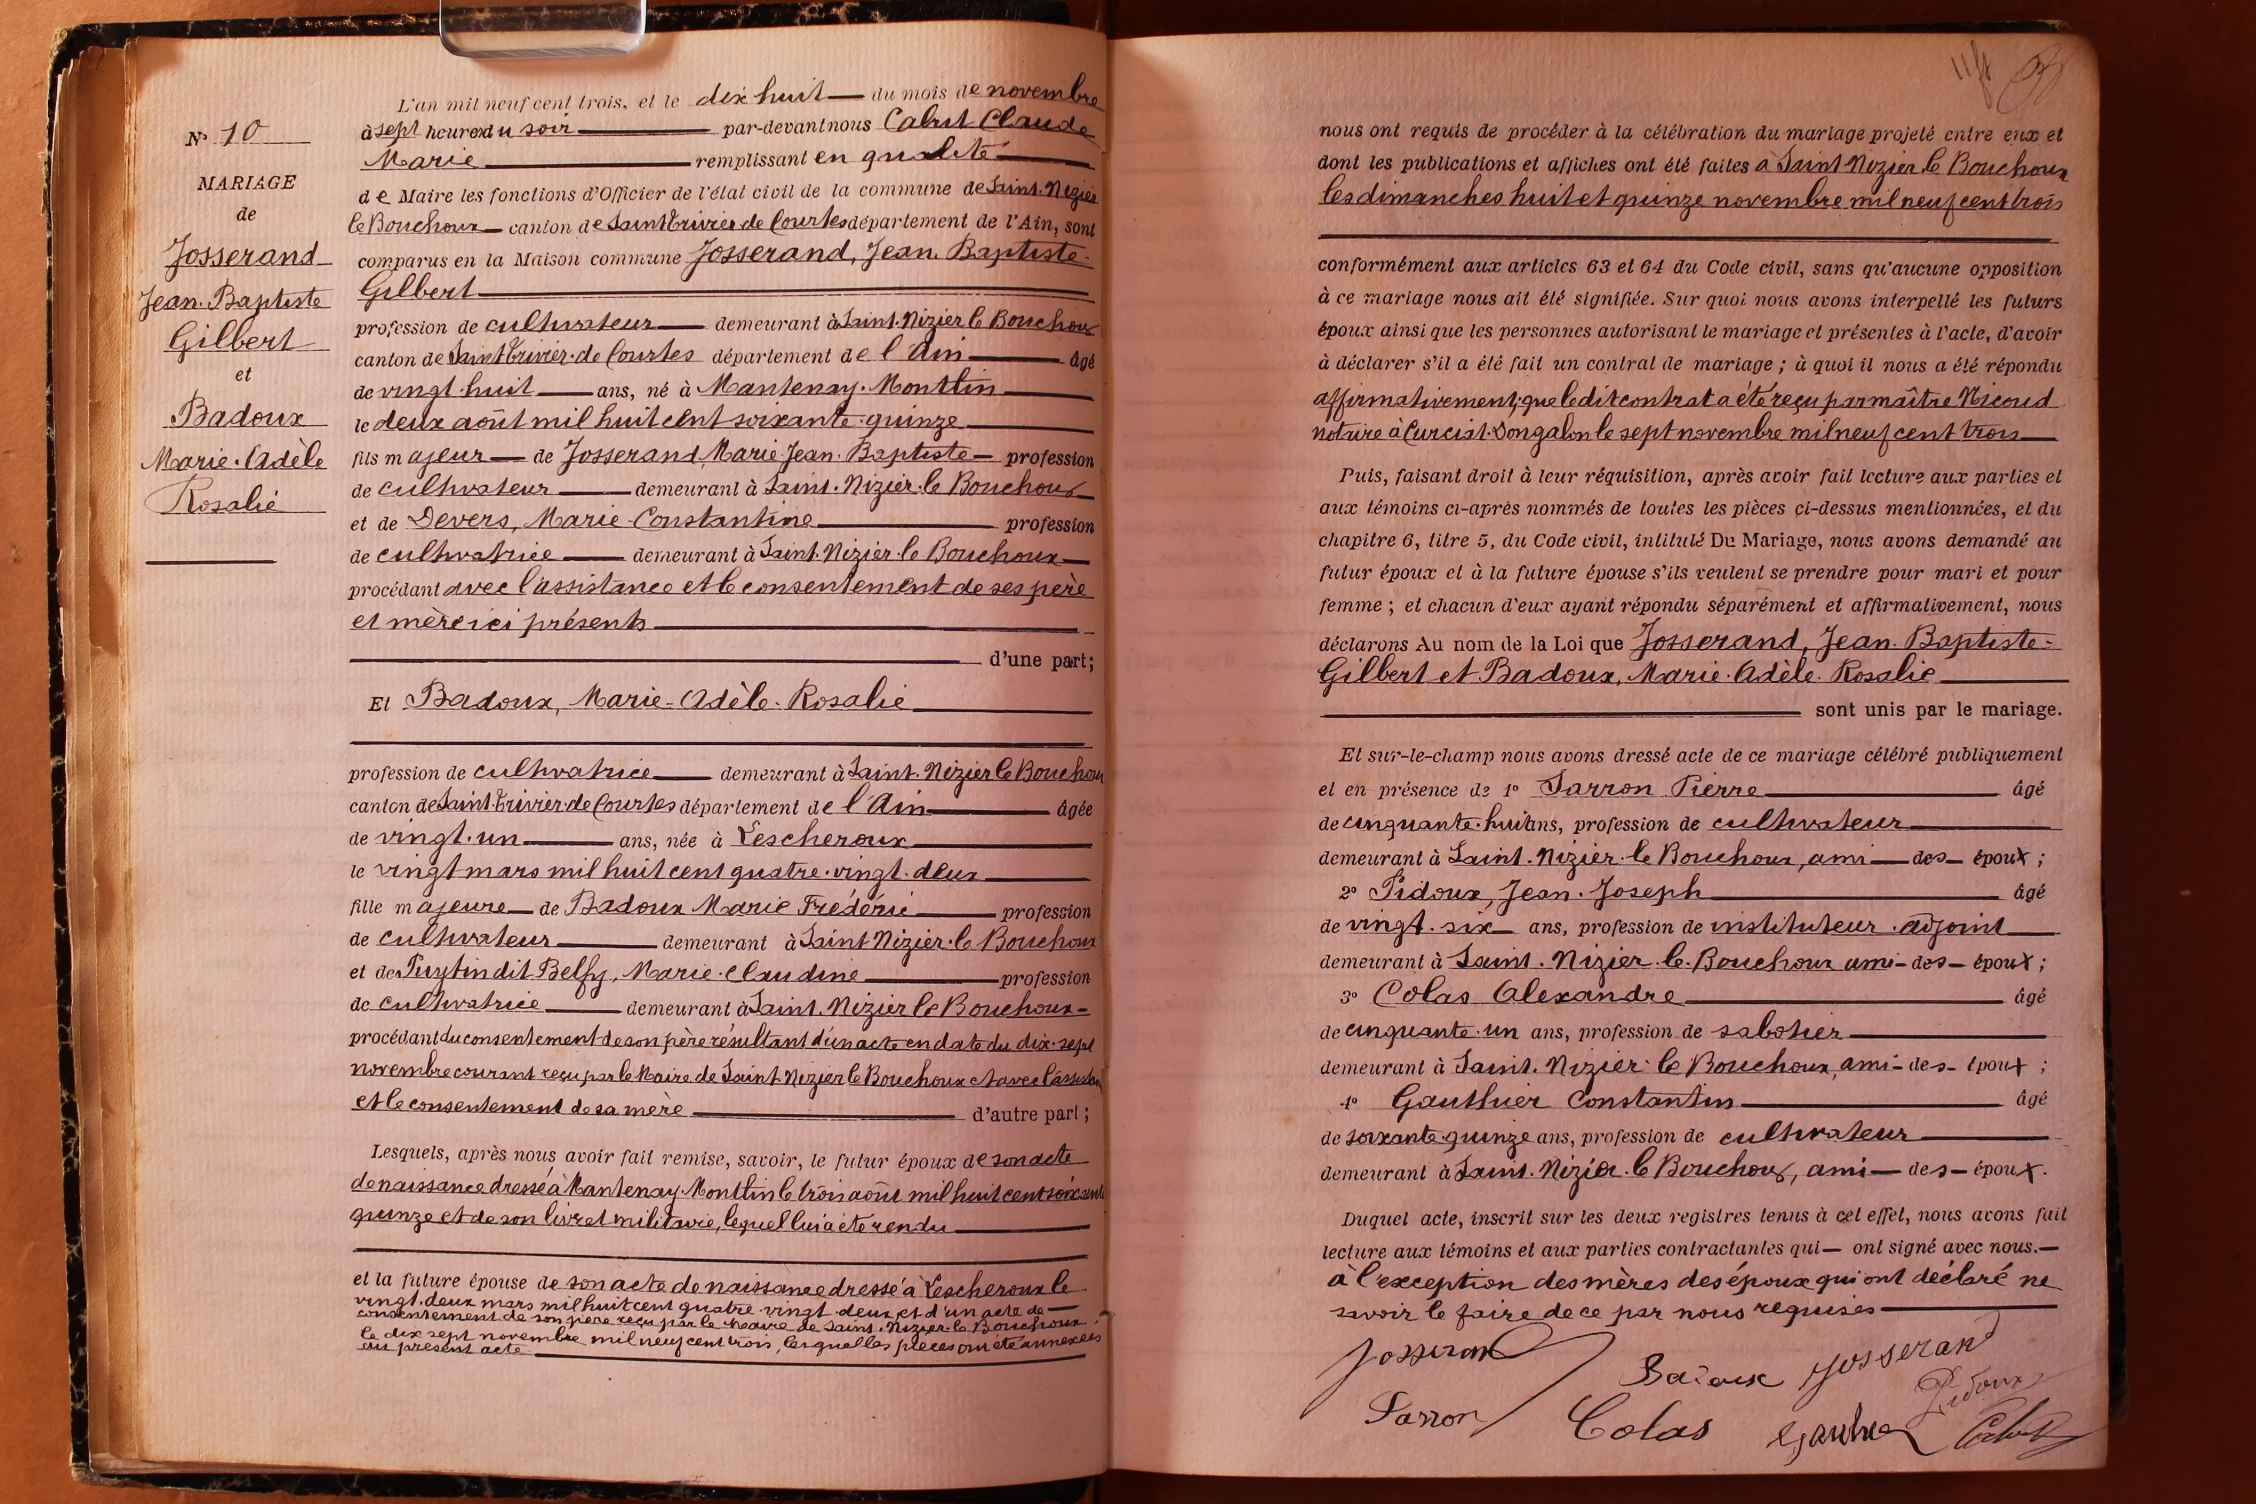 N° 10
MARIAGE
de
Josserand
Jean-Baptiste
Gilbert
et
Badoux
Marie-Adèle
Rosalie
L'an mil neuf cent trois, et le dix huit du mois de novembre
à sept heures du soir par-devant nous Cabut Claude
Marie remplissant en qualité
de Maire les fonctions d'Officier de l'état civil de la commune de Saint-Nizier
le Bouchoux canton de Saint Trivier de Courtes département de l'Ain, sont
comparus en la Maison commune Josserand, Jean-Baptiste-
Gilbert
profession de cultivateur demeurant à Saint-Nizier le Bouchoux
canton de Saint Trivier-de Courtes département de l'Ain âgé
de vingt-huit ans, né à Mantenay-Montlin
le deux août mil huit cent soixante-quinze
fils majeur de Josserand, Marie-Jean-Baptiste profession
de cultivateur demeurant à Saint-Nizier-le Bouchoux
et de Devers, Marie-Constantine profession
de cultivatrice demeurant à Saint-Nizier-le Bouchoux
procédant avec l'assistance et le consentement de ses père
et mère ici présents
d'une part;
Et Badoux, Marie-Adèle-Rosalie
profession de cultivatrice demeurant à Saint-Nizier le Bouchoux
canton de Saint-Trivier-de Courtes département de l'Ain âgée
de vingt-un ans, née à Lescheroux
le vingt mars mil huit cent quatre-vingt-deux
fille majeure de Badoux Marie Frédéric profession
de cultivateur demeurant à Saint Nizier-le Bouchoux
et de Puytin dit Belfy, Marie-Claudine profession
de cultivatrice demeurant à Saint-Nizier le Bouchoux
procédant du consentement de son père résultant d'un acte en date du dix-sept
novembre courant reçu par le Maire de Saint-Nizier le Bouchoux et avec l'assistance
et le consentement de sa mère d'autre part;
Lesquels, après nous avoir fait remise, savoir, le futur époux de son acte
de naissance dressé à Mantenay-Montlin le trois août mil huit cent soixante
quinze et de son livret militaire, lequel lui a été rendu
et la future épouse de son acte de naissance dressé à Lescheroux le
vingt-deux mars mil huit cent quatre vingt-deux, et d'un acte de
consentement de son père reçu par le Maire de Saint-Nizier-le Bouchoux
le dix sept novembre mil neuf cent trois, lesquelles pièces ont été annexées
au présent acte
nous ont requis de procéder à la célébration du mariage projeté entre eux et
dont les publications et affiches ont été faites à Saint Nizier le Bouchoux
les dimanches huit et quinze novembre mil neuf cent trois
conformément aux articles 63 et 64 du Code civil, sans qu'aucune opposition
à ce mariage nous ait été signifiée. Sur quoi nous avons interpellé les futurs
époux ainsi que les personnes autorisant le mariage et présentes à l'acte, d'avoir
à déclarer s'il a été fait un contrat de mariage; à quoi il nous a été répondu
affirmativement; que le dit contrat a été reçu par maître Nicoud
notaire à Curciat-Dongalon le sept novembre mil neuf cent trois
Puis, faisant droit à leur réquisition, après avoir fait lecture aux parties et
aux témoins ci-après nommés de toutes les pièces ci-dessus mentionnées, et du
chapitre 6, titre 5, du Code civil, intitulé Du Mariage, nous avons demandé au
futur époux et à la future épouse s'ils veulent se prendre pour mari et pour
femme; et chacun d'eux ayant répondu séparément et affirmativement, nous
déclarons Au nom de la Loi que Josserand, Jean-Baptiste-
Gilbert et Badoux, Marie-Adèle-Rosalie
sont unis par le mariage.
Et sur-le-champ nous avons dressé acte de ce mariage célébré publiquement
et en présence de 1° Sarron Pierre âgé
de cinquante-huit ans, profession de cultivateur
demeurant à Saint-Nizier-le Bouchoux, ami des époux;
2° Pidoux, Jean-Joseph âgé
de vingt-six ans, profession de instituteur-adjoint
demeurant à Saint-Nizier-le-Bouchoux ami des époux;
3° Colas Alexandre âgé
de cinquante-un ans, profession de sabotier
demeurant à Saint-Nizier-le Bouchoux, ami des époux;
4° Gauthier Constantin âgé
de soixante-quinze ans, profession de cultivateur
demeurant à Saint-Nizier-le Bouchoux, ami des époux.
Duquel acte, inscrit sur les deux registres tenus à cet effet, nous avons fait
lecture aux témoins et aux parties contractantes qui ont signé avec nous.
à l'exception des mères des époux qui ont déclaré ne
savoir le faire de ce par nous requises
Josserand Badoux Josserand
Pidoux
Sarron Colas Gauthier Cabut